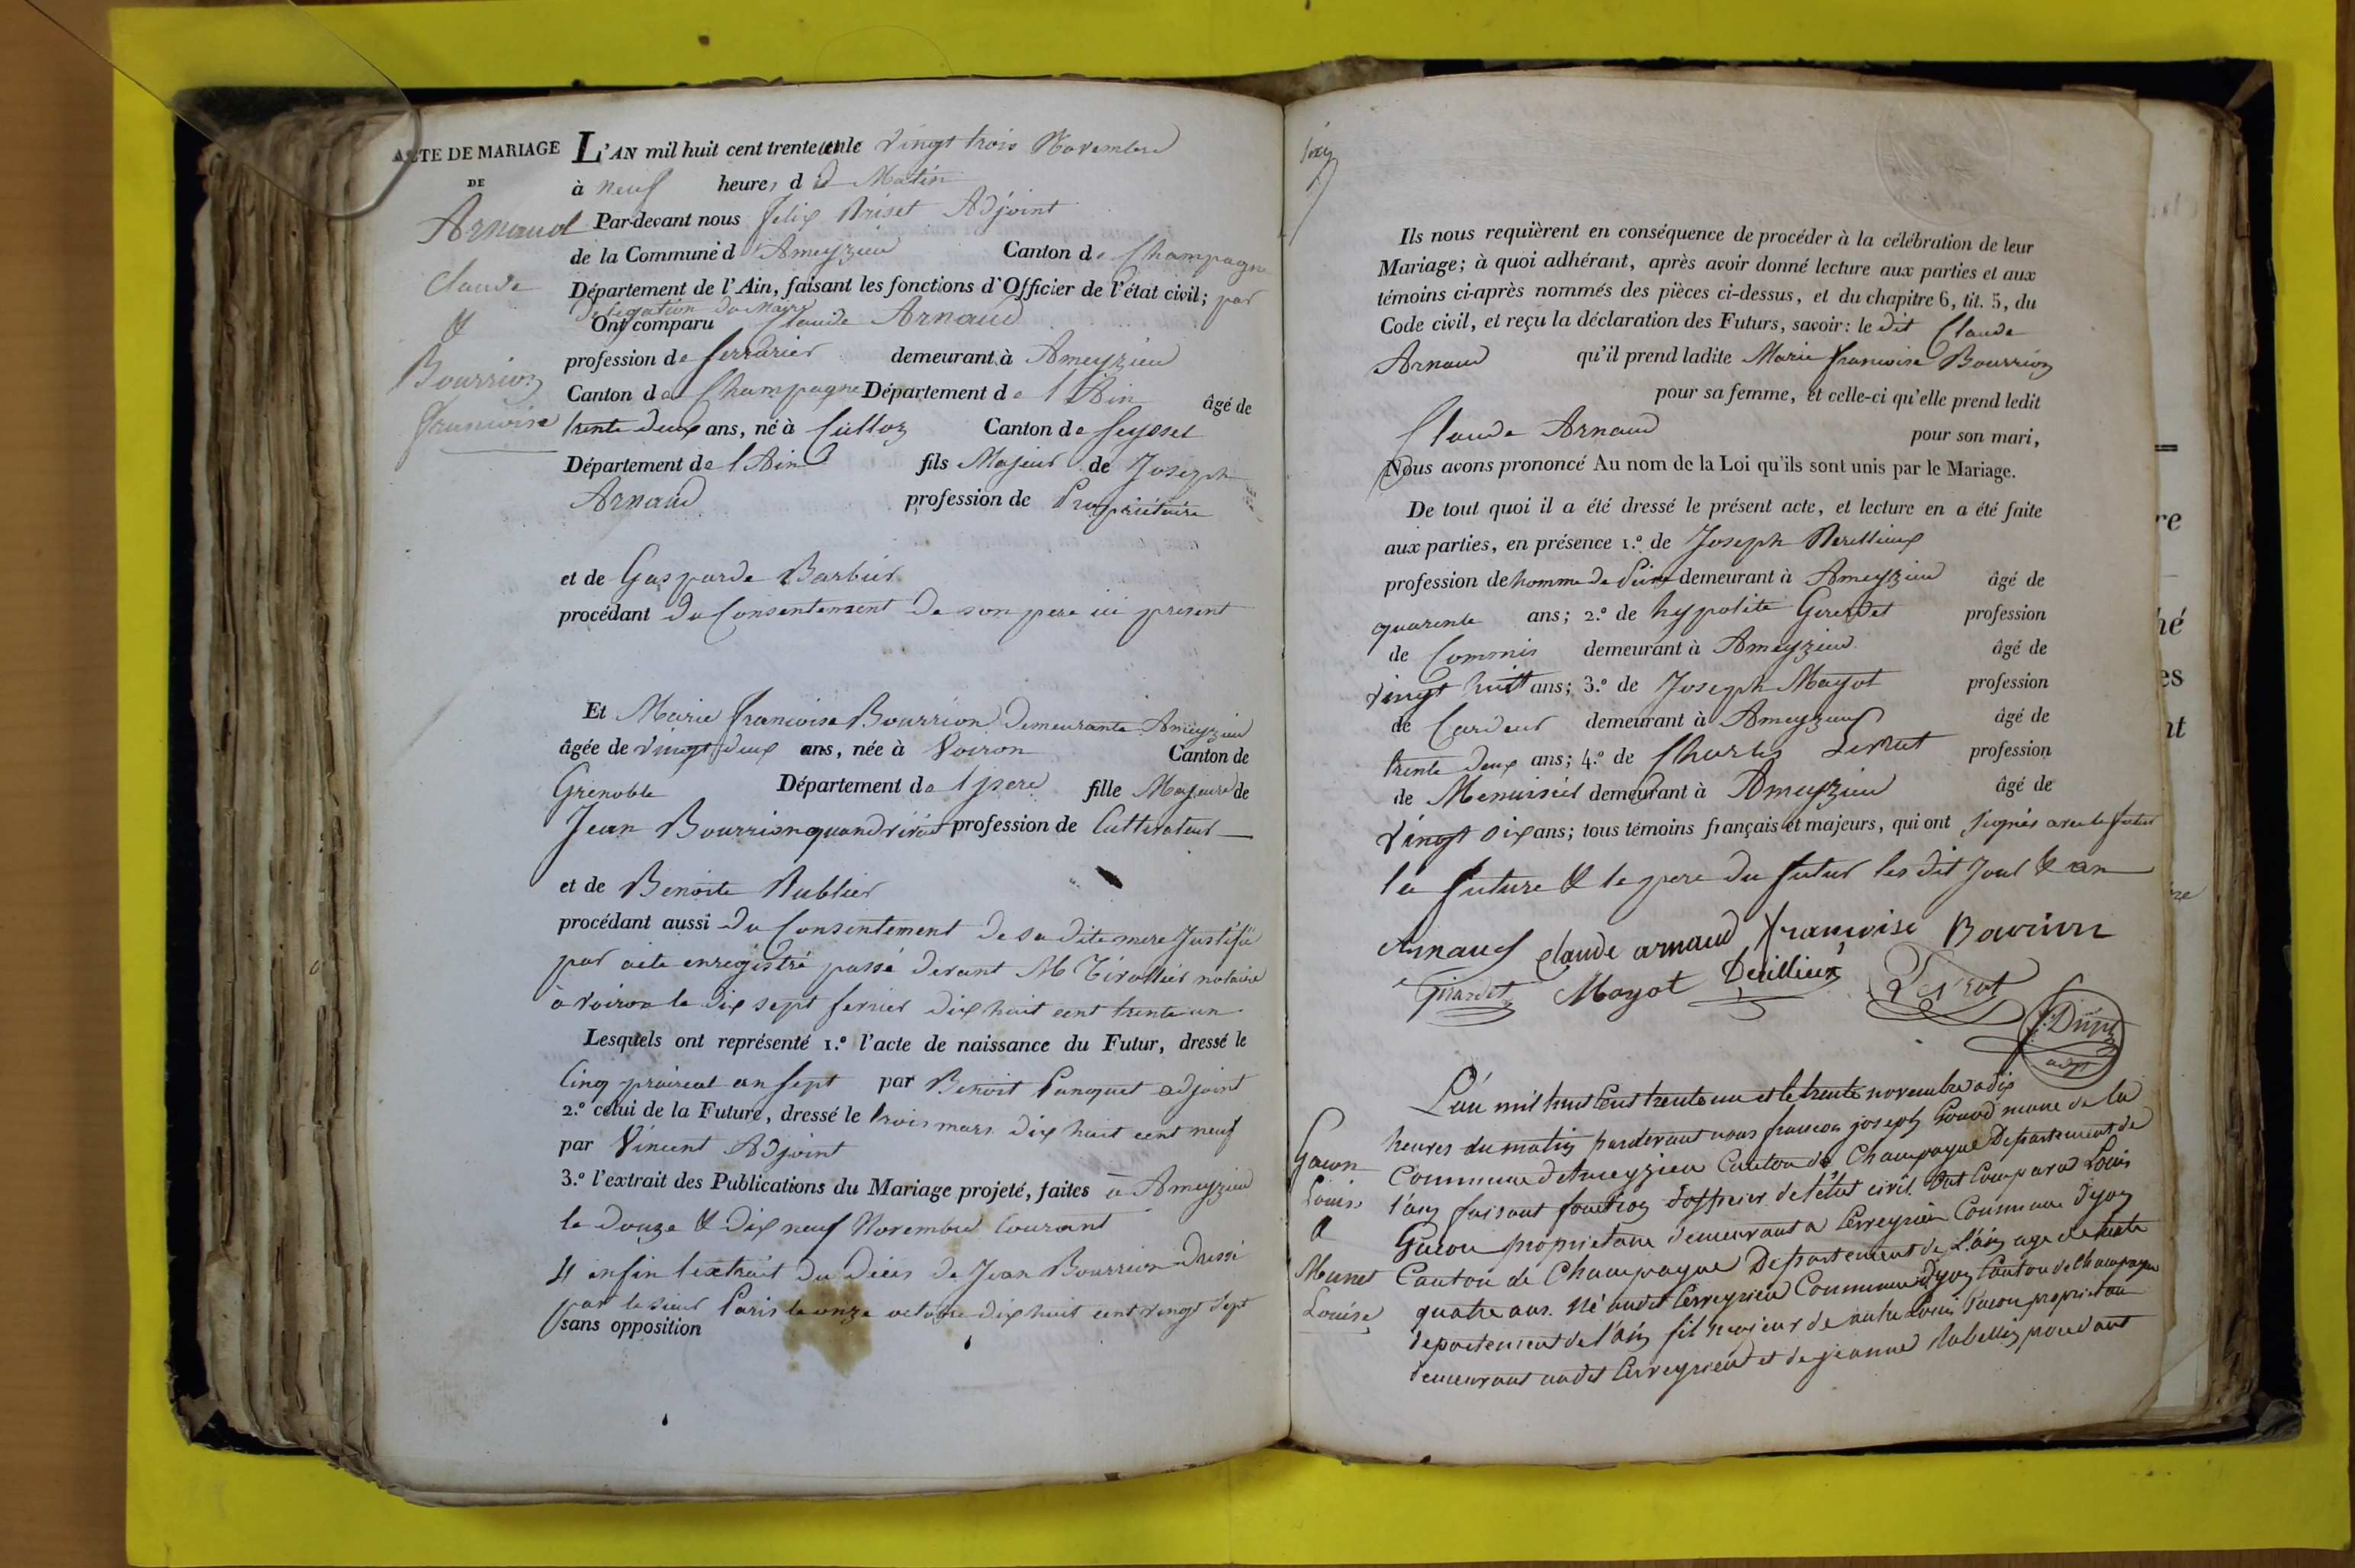 ACTE DE MARIAGE
DE
Arnaud
Claude
&
Bourrion
francoise
L'AN mil huit cent trente un le vingt trois Novembre
à neuf heures d u Matin
Par-devant nous felix Driset Adjoint
de la Commune d'Ameyzieu Canton de Champagne
Département de l'Ain, faisant les fonctions d'Officier de l'état civil; par
Delegation du Maire
Ont comparu Claude Arnaud
profession de serrurier demeurant à Ameyzieu
Canton de Champagne Département de l'Ain âgé de
trente deux ans, né à Culloz Canton de seyssel
Département de l'Ain fils Majeur de Joseph
Arnaud profession de Propriétaire
et de Gasparde Barbier
procédant du Consentement de son pere ici present
Et Marie francoise Bourrion demeurante Ameyzieu
âgée de vingt deux ans, née à Voiron Canton de
Grenoble Département de l'isere fille Majeure de
Jean Bourrion quand vivoit profession de Cultivateur
et de Benoite Rublier
procédant aussi du Consentement de sa dite mere Justifié
par acte enregistré passé devant M Tivollier notaire
à voiron le dix sept fevrier dix huit cent trente un
Lesquels ont représenté 1.º l'acte de naissance du Futur, dressé le
Cinq prairial an sept par Benoit Panquet adjoint
2.º celui de la Future, dressé le trois mars dix huit cent neuf
par Vincent Adjoint
3.º l'extrait des Publications du Mariage projeté, faites à Ameyzieu
le douze & dix neuf Novembre Courant
4 enfin l'extrait du décès de Jean Bourrion dressé
par le sieur Paris le onze octobre dix huit cent vingt sept
sans opposition
Ils nous requièrent en conséquence de procéder à la célébration de leur
Mariage; à quoi adhérant, après avoir donné lecture aux parties et aux
témoins ci-après nommés des pièces ci-dessus, et du chapitre 6, tit. 5, du
Code civil, et reçu la déclaration des Futurs, savoir: le dit Claude
Arnaud qu'il prend ladite Marie francoise Bourrion
pour sa femme, et celle-ci qu'elle prend ledit
Claude Arnaud pour son mari,
Nous avons prononcé Au nom de la Loi qu'ils sont unis par le Mariage.
De tout quoi il a été dressé le présent acte, et lecture en a été faite
aux parties, en présence 1.º de Joseph Derillieux
profession de homme de Peine demeurant à Ameyzieu âgé de
quarente ans; 2.º de hypolite Girardet profession
de Commis demeurant à Ameyzieu âgé de
vingt huit ans; 3.º de Joseph Mayot profession
de Cardeur demeurant à Ameyzieu âgé de
trente deux ans; 4.º de Charles Lerrat profession
de Menuisier demeurant à Ameyzieu âgé de
vingt six ans; tous témoins français et majeurs, qui ont signés avec le futur
la future & le pere du futur les dit Jour & an
Arnaud Claude arnaud francoise Bourrion
Girardet Mayot Derillieux Lerrat
adjt
Gacon
Louis
&
Munet
Louise
L'an mil huit Cent trente un et le trente novembre a dix
heures du matin pardevant nous francois joseph Goud maire de la
Commune d'Ameyzieu Canton de Champagne Departement de
l'ain faisant fonction d'officier de l'état civil. Ont Comparu Louis
Gacon proprietaire demeurant a Cerveyrieu Commune d'yon
Canton de Champagne Departement de L'ain age de trente
quatre ans. Né audit Cerveyrieu Commune d'yon Canton de Champagne
departement de l'ain fil majeur de autre Louis Gacon proprietaire
demeurant audit Cerveyrieu et de jeanne Rabellin